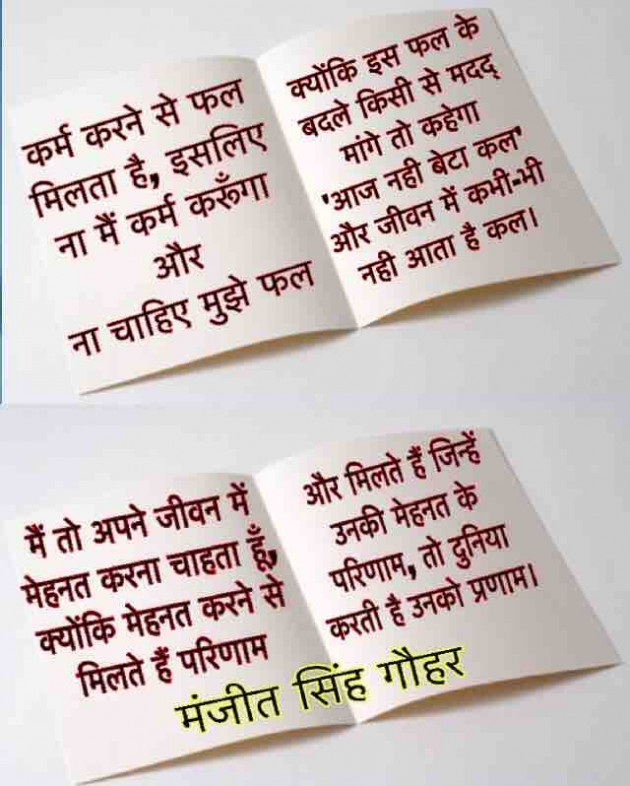 कर्म करने से फल
मिलता है, इसलिए
ना मैं कर्म करूँगा
और
ना चाहिए मुझे फल
क्योंकि इस फल के
बदले किसी से मदद्
मांगे तो कहेगा
'आज नही बेटा कल'
और जीवन में कभी-भी
नही आता है कल।
मैं तो अपने जीवन में
मेहनत करना चाहता हूँ,
क्योंकि मेहनत करने से
मिलते हैं परिणाम
और मिलते हैं जिन्हें
उनकी मेहनत के
परिणाम, तो दुनिया
करती है उनको प्रणाम।
मंजीत सिंह गौहर